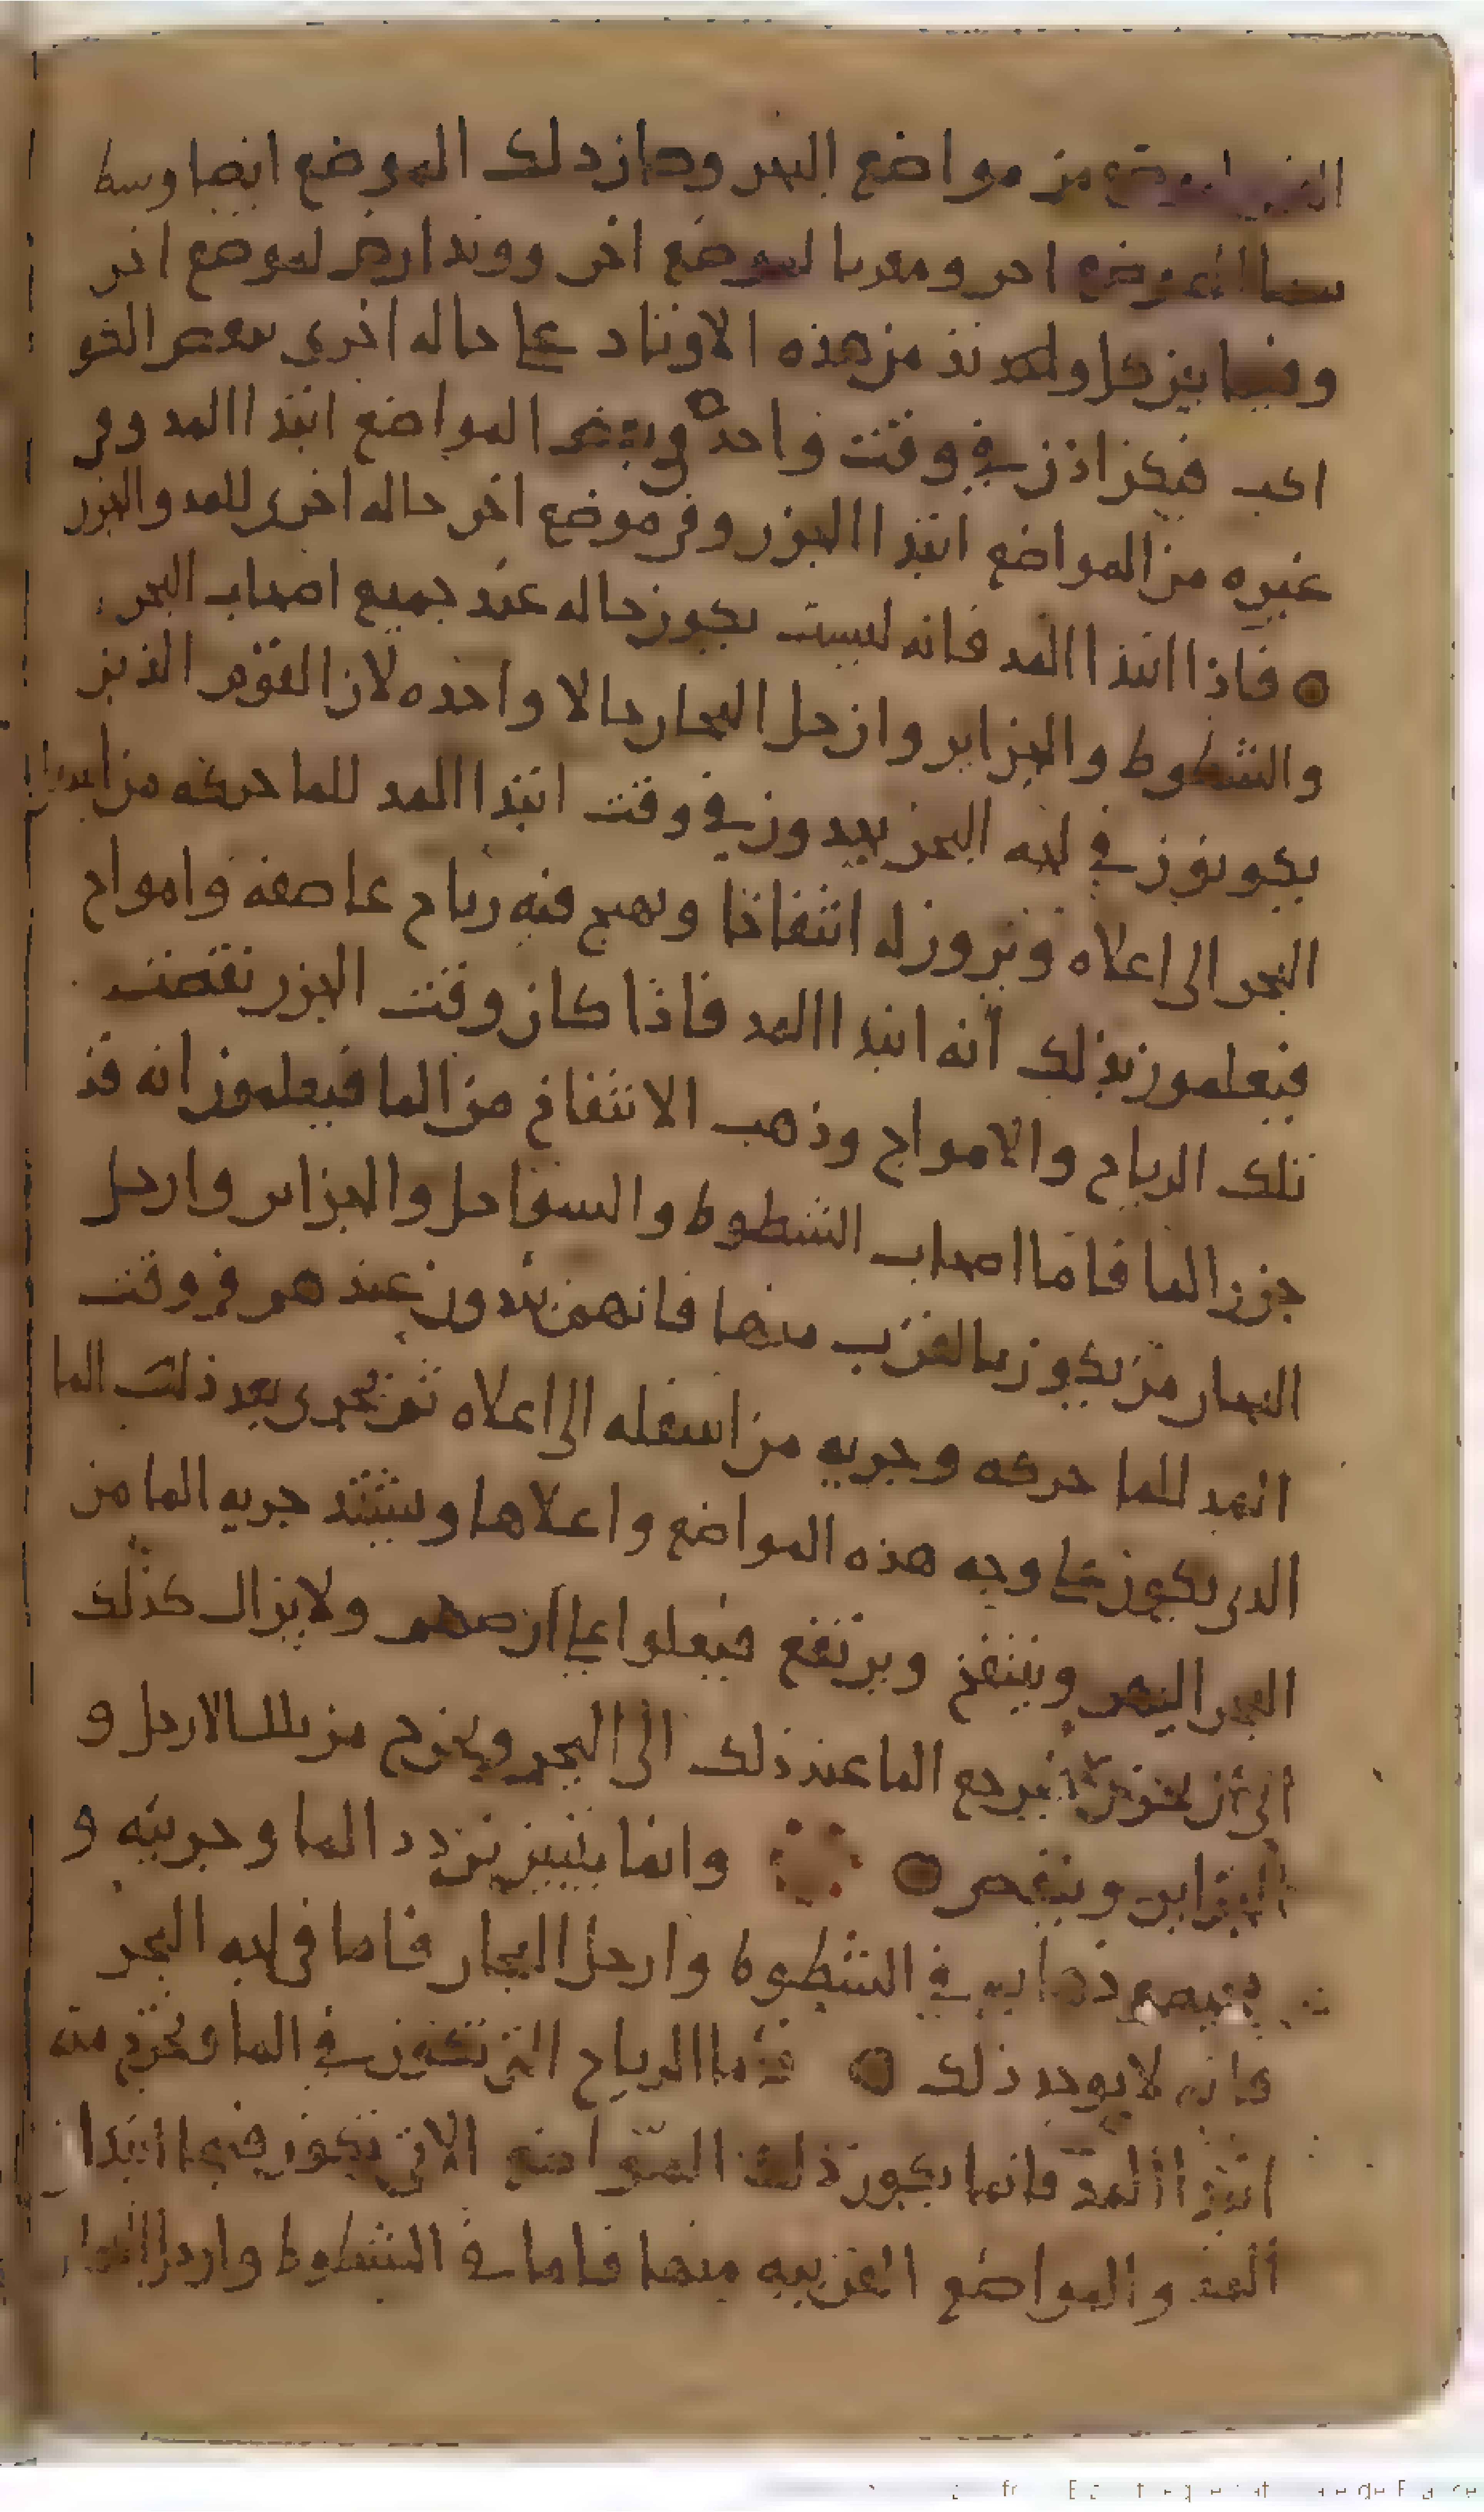 القمر لموضع من مواضع البحر وكان ذلك الموضع ايضا وسط
سما الموضع اخر ومغربا لموضع اخر ووتد ارض لموضع اخر
وفيما بين كل وتد من هذه الاوتاد على حاله اخرى
فيكون اذن في وقت واحد في بعض المواضع ابتدا المد وفي
غيره من المواضع ابتدا الجزر وفي موضع اخر حاله اخرى للمد والجزر
فاذا ابتدا المد فانه ليست يكون حاله عند جميع اصحاب البحر
والشطوط والجزاير وارجل البحار حالا واحده لان القوم الذين
يكونون في لجه البحر يجدون في وقت ابتدا المد للما حركه من
البحر الى اعلاه ويرون له انتفاخا ويهيج فيه رياح عاصفه وامواج
فيعلمون بذلك انه ابتدا المد فاذا كان وقت الجزر نقصت
تلك الرياح والامواج وذهب الانتفاخ من الما فيعلمون انه قد
جزر الما فاما اصحاب الشطوط والسواحل والجزاير وارجل
البحار من يكون بالقرب منها فانهم يجدون عندهم في وقت
المد للما حركه وجريه من اسفله الى اعلاه ثم يجرى بعد ذلك الما
الذى يكون على وجه هذه المواضع واعلاها ويشتد جريه الما من
البحر اليهم وينتفخ ويرتفع فيعلوا على ارضهم ولا يزال كذلك
الى ان يجزر فيرجع الما عند ذلك الى البحر ويخرج من تلك الارجل و
الجزاير وينقص وانما يتبين تردد الما وجريته و
في الشطوط وارجل البحار فاما في لجه البحر
فانه لا يوجد ذلك فاما الرياح التي تكون في الما وتخرج منه
ابتدا المد فانما يكون ذلك المواضع التي يكون فيها ابتدا
المد والمواضع القريبه منها فاما في الشطوط وارجل البحار